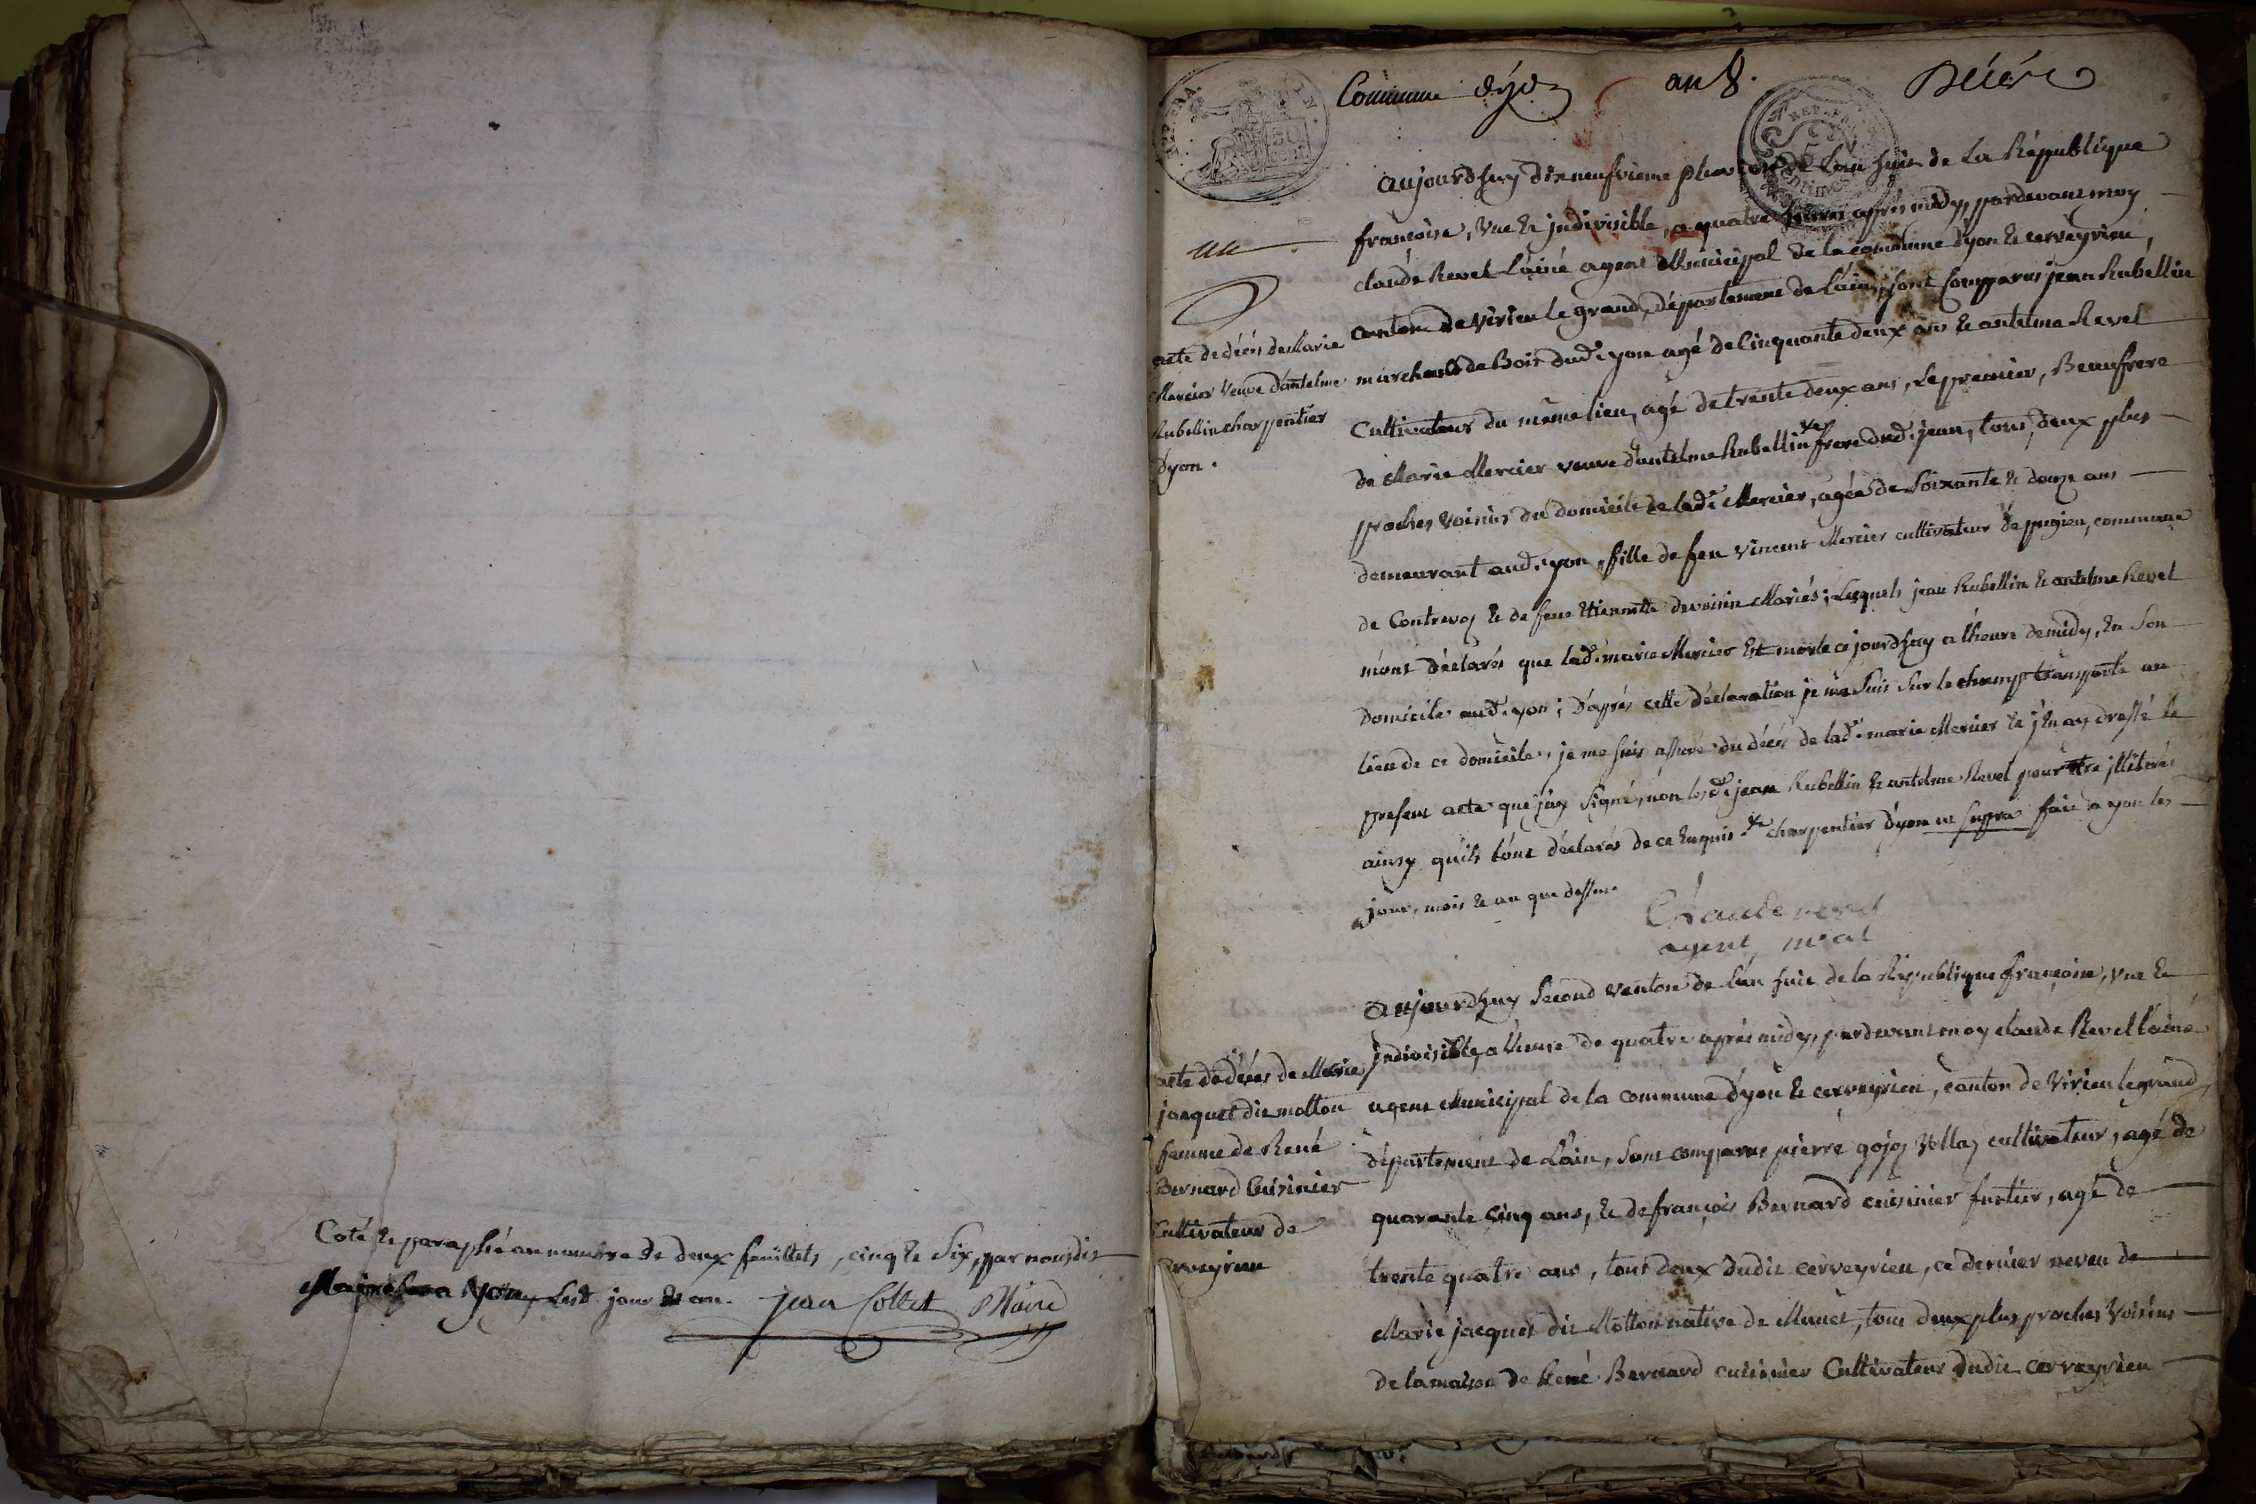 Coté & paraphé au nombre de deux feuillets, cinq & Six, par nous dit
Yon, Lesd. jour & an. jean Collet Maire
Commune d'yon an 8. Décés
un
acte de décés de Marie
Mercier Veuve d'antelme
Rubellin charpentier
d'yon.
aujourdhuy dixneufvieme pluviose de L'an huit de La République
françoise, Une & jndivisible, a quatre heures après midy, pardevant moy
claude Revel L'ainé agent Municipal de la commune d'yon & cerveyrieu,
canton de Virieu le grand, département de L'ain, sont Comparus jean Rubellin
marchand de Bois dud. yon agé de Cinquante deux ans & antelme Revel
Cultivateur du même lieu, agé de trente deux ans, Le premier, Beaufrere
de Marie Mercier veuve d'antelme Rubellin frere dud. jean, tous deux plus
proches voisins du domicile de lad.e Mercier, agée de Soixante & douze ans
demeurant aud. yon, fille de feu Vincent Mercier cultivateur de pugieu, commune
de Contrevoz & de feue Etiennette devoisin Mariés; Lesquels jean Rubellin & antelme Revel
m'ont déclarés que lad. marie Mercier Est morte ce jourdhuy a l'heure de midy, En Son
domicile aud. yon; d'après cette déclaration je me Suis Sur le champ transporté au
lieu de ce domicile, je me suis assuré du décés de lad. marie Mercier & j'En ay dressé le
present acte que j'ay Signé, non lesd. jean Rubellin & antelme Revel pour être jlliterés
ainsy qu'ils l'ont déclarés de ce Enquis. charpentier d'yon ut supra fait a yon les
jour, mois & an que dessus.
Claude revel
agent m.al
acte de décés de Marie
jacquet dit molton
femme de René
Bernard Cuisinier
Cultivateur de
Cerveyrieu
aujourdhuy Second Ventose de L'an huit de la République françoise, Une &
jndivisible, a l'heure de quatre après midy, pardevant moy claude Revel l'ainé
agent Municipal de la commune d'yon & cerveyrieu, canton de Virieu le grand,
département de L'ain, sont comparus pierre gojoz cultivateur, agé de
quarante cinq ans, & de françois Bernard cuisinier fustier, agé de
trente quatre ans, tous deux dudit cerveyrieu, ce dernier neveu de
Marie jacquet dit Molton native de Munet, tous deux plus proches Voisins
de la maison de René Bernard cuisinier Cultivateur dudit cerveyrieu